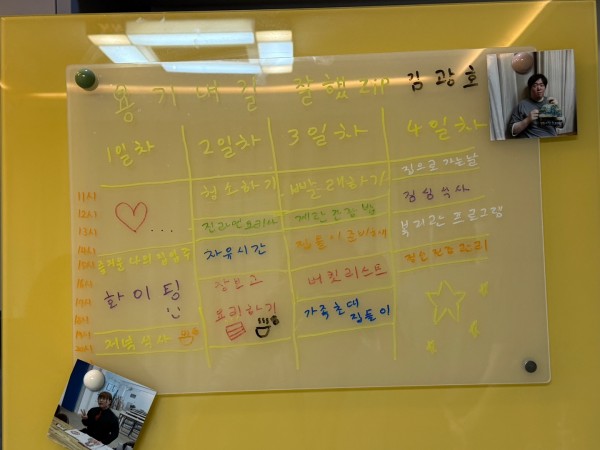 용기내길 잘했zip 김광호
1일차
2일차
3일차
4일차
11시
12시
13시
...
즐거운 나의 집입주
화이팅
저녁식사
청소하기
진라면요리사
자유시간
장보고
요리하기
빨래하기
계란간장밥
집들이준비
버킷리스트
가족초대
집들이
집으로 가는날
점심식사
복지관 프로그램